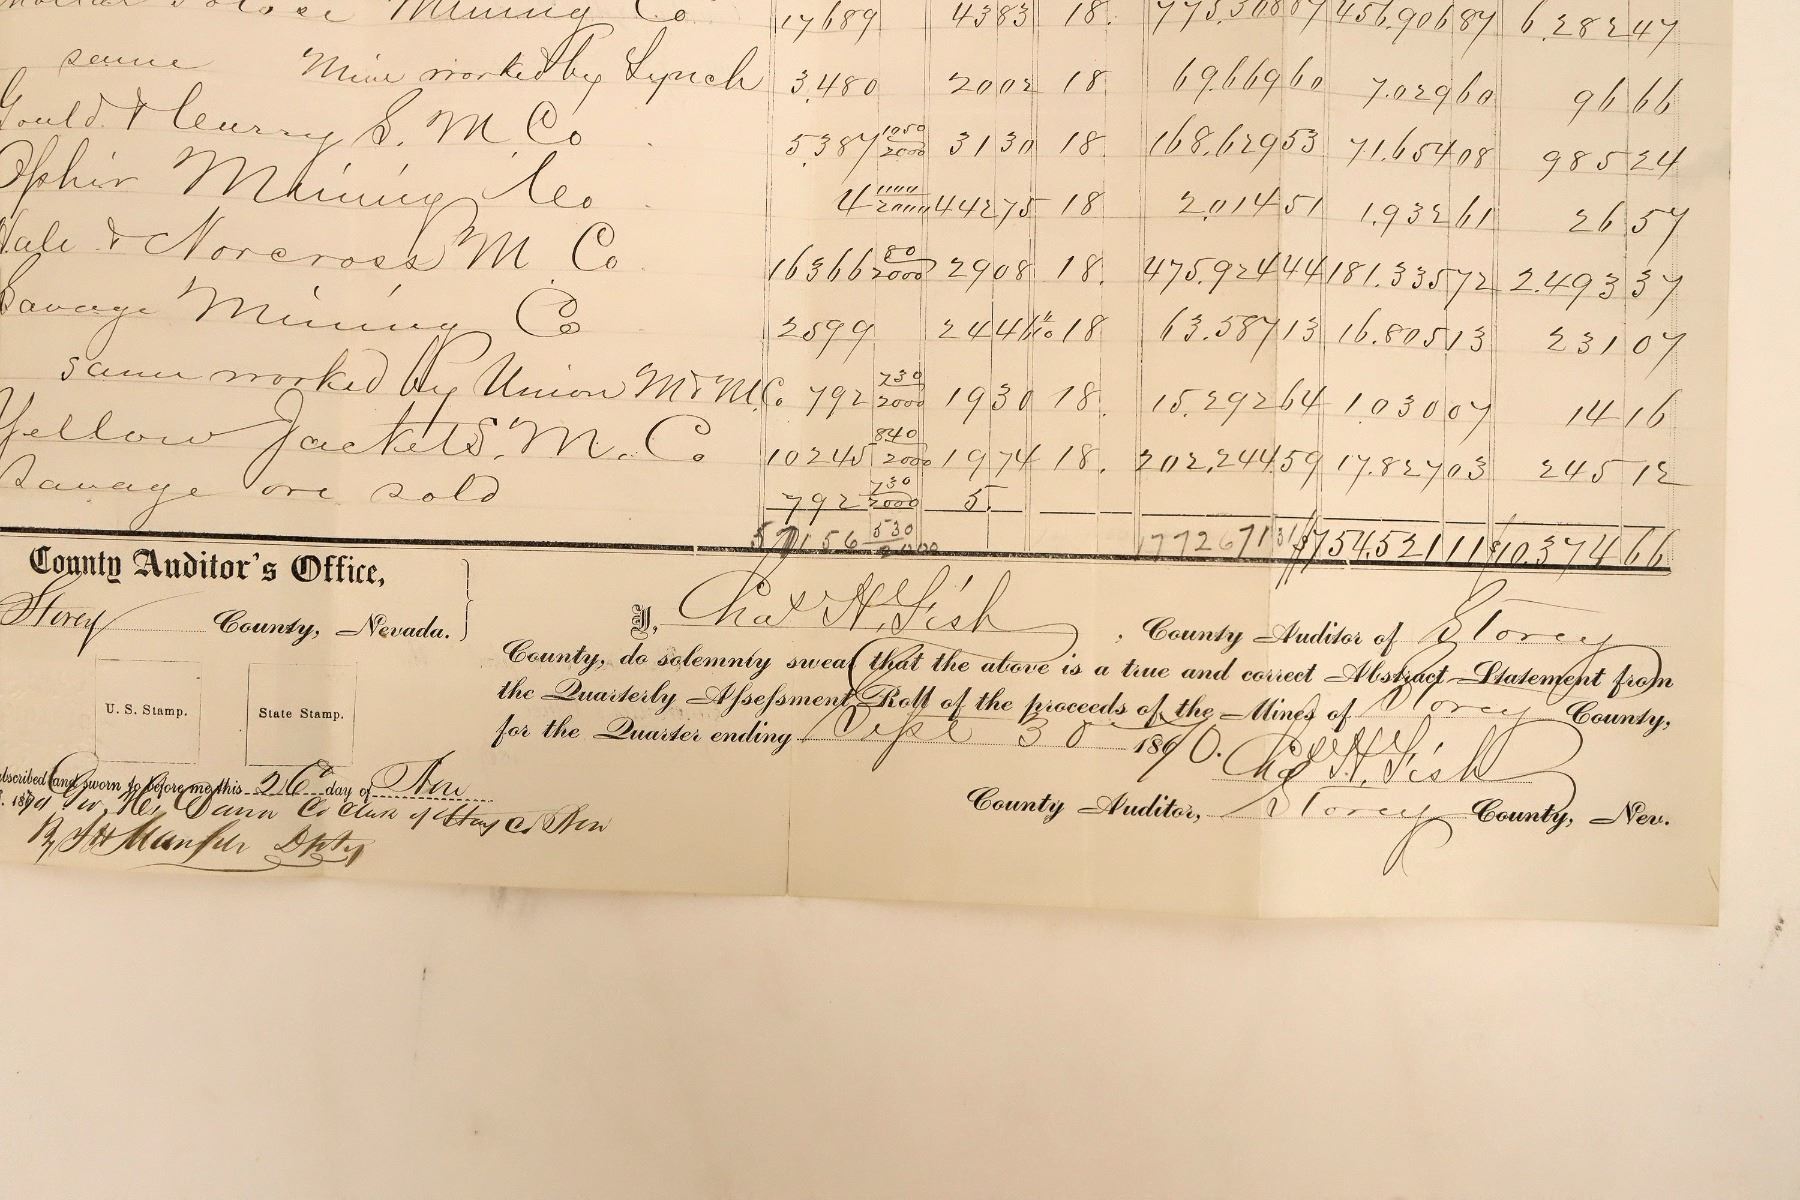 Mining Co 17689 4383 18. 775.308 07 456.906 87 6.282 47
same Mine worked by Lynch 3.480 2002 18 69.669 60 7.029 60 96 66
Gould & Curry S. M. Co 5.387 1050/2000 3130 18. 168.629 53 71.654 08 985 24
Ophir Mining Co 4 1100/2000 442 75 18 2.014 51 1.932 61 26 57
Hale & Norcross M Co 16366 80/2000 2908 18. 475.924 44 181.335 72 2.493 37
Savage Mining Co 2599 2446 18 63.587 13 16.805 13 231 07
same worked by Union M & M. Co 792 730/2000 1930 18. 15.292 64 1.030 07 14 16
Yellow Jacket S. M. Co 10245 840/2000 1974 18. 202.244 59 17.827 03 245 12
Savage ore sold 792 730/2000 5.
57156 530/2000 1772671 31 $754521 11 $10.374 66
County Auditor's Office,
Storey County, Nevada.
I, Chas H. Fish, County Auditor of Storey
County, do solemnly swear that the above is a true and correct Abstract Statement from
the Quarterly Assessment Roll of the proceeds of the Mines of Storey County,
for the Quarter ending Sept 30 1870.
Chas H. Fish
County Auditor, Storey County, Nev.
U. S. Stamp.
State Stamp.
subscribed and sworn to before me this 26 day of Nov
1870 Co Clerk of Storey Co Nev
By Dpty